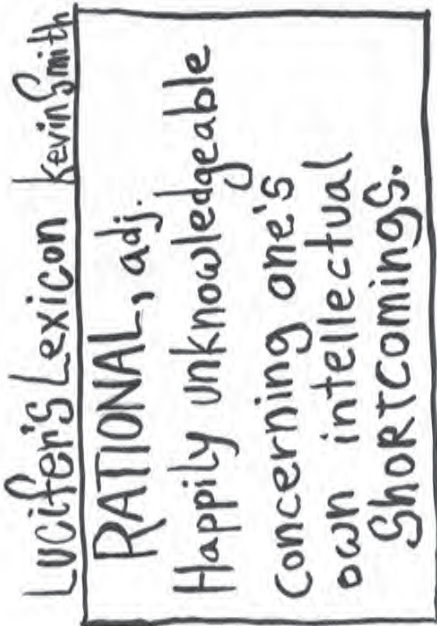 Lucifer's Lexicon Kevin Smith
RATIONAL, adj.
Happily unknowledgeable
concerning one's
own intellectual
shortcomings.